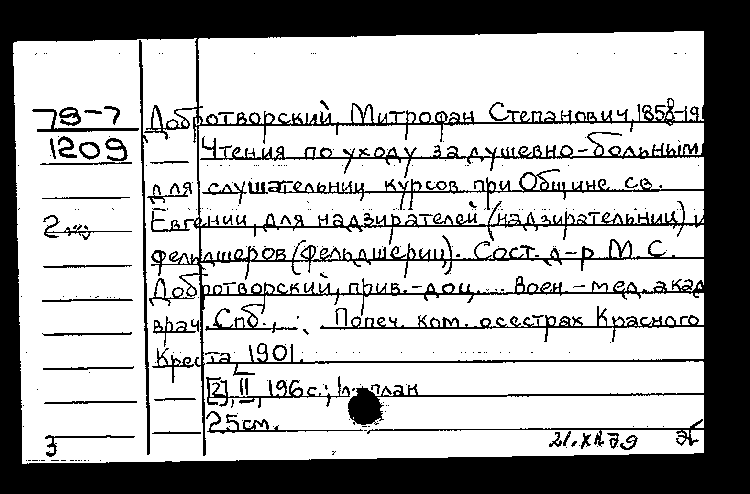 78-7 Добротворский, Митрофан Степанович, 1858-19
1209 Чтения по уходу за душевно-больными
для слушательниц курсов при Общине св.
2 Евгении, для надзирателей (надзирательниц) и
фельдшеров (фельдшериц). Сост. д-р М. С.
Добротворский, прив.-доц. ... Воен-мед. акад
врач. Спб., Попеч. ком. о сестрах Красного
Креста, 1901.
[2], II, 196 с.; 1 л. план
25 см.
3 21.XII 79